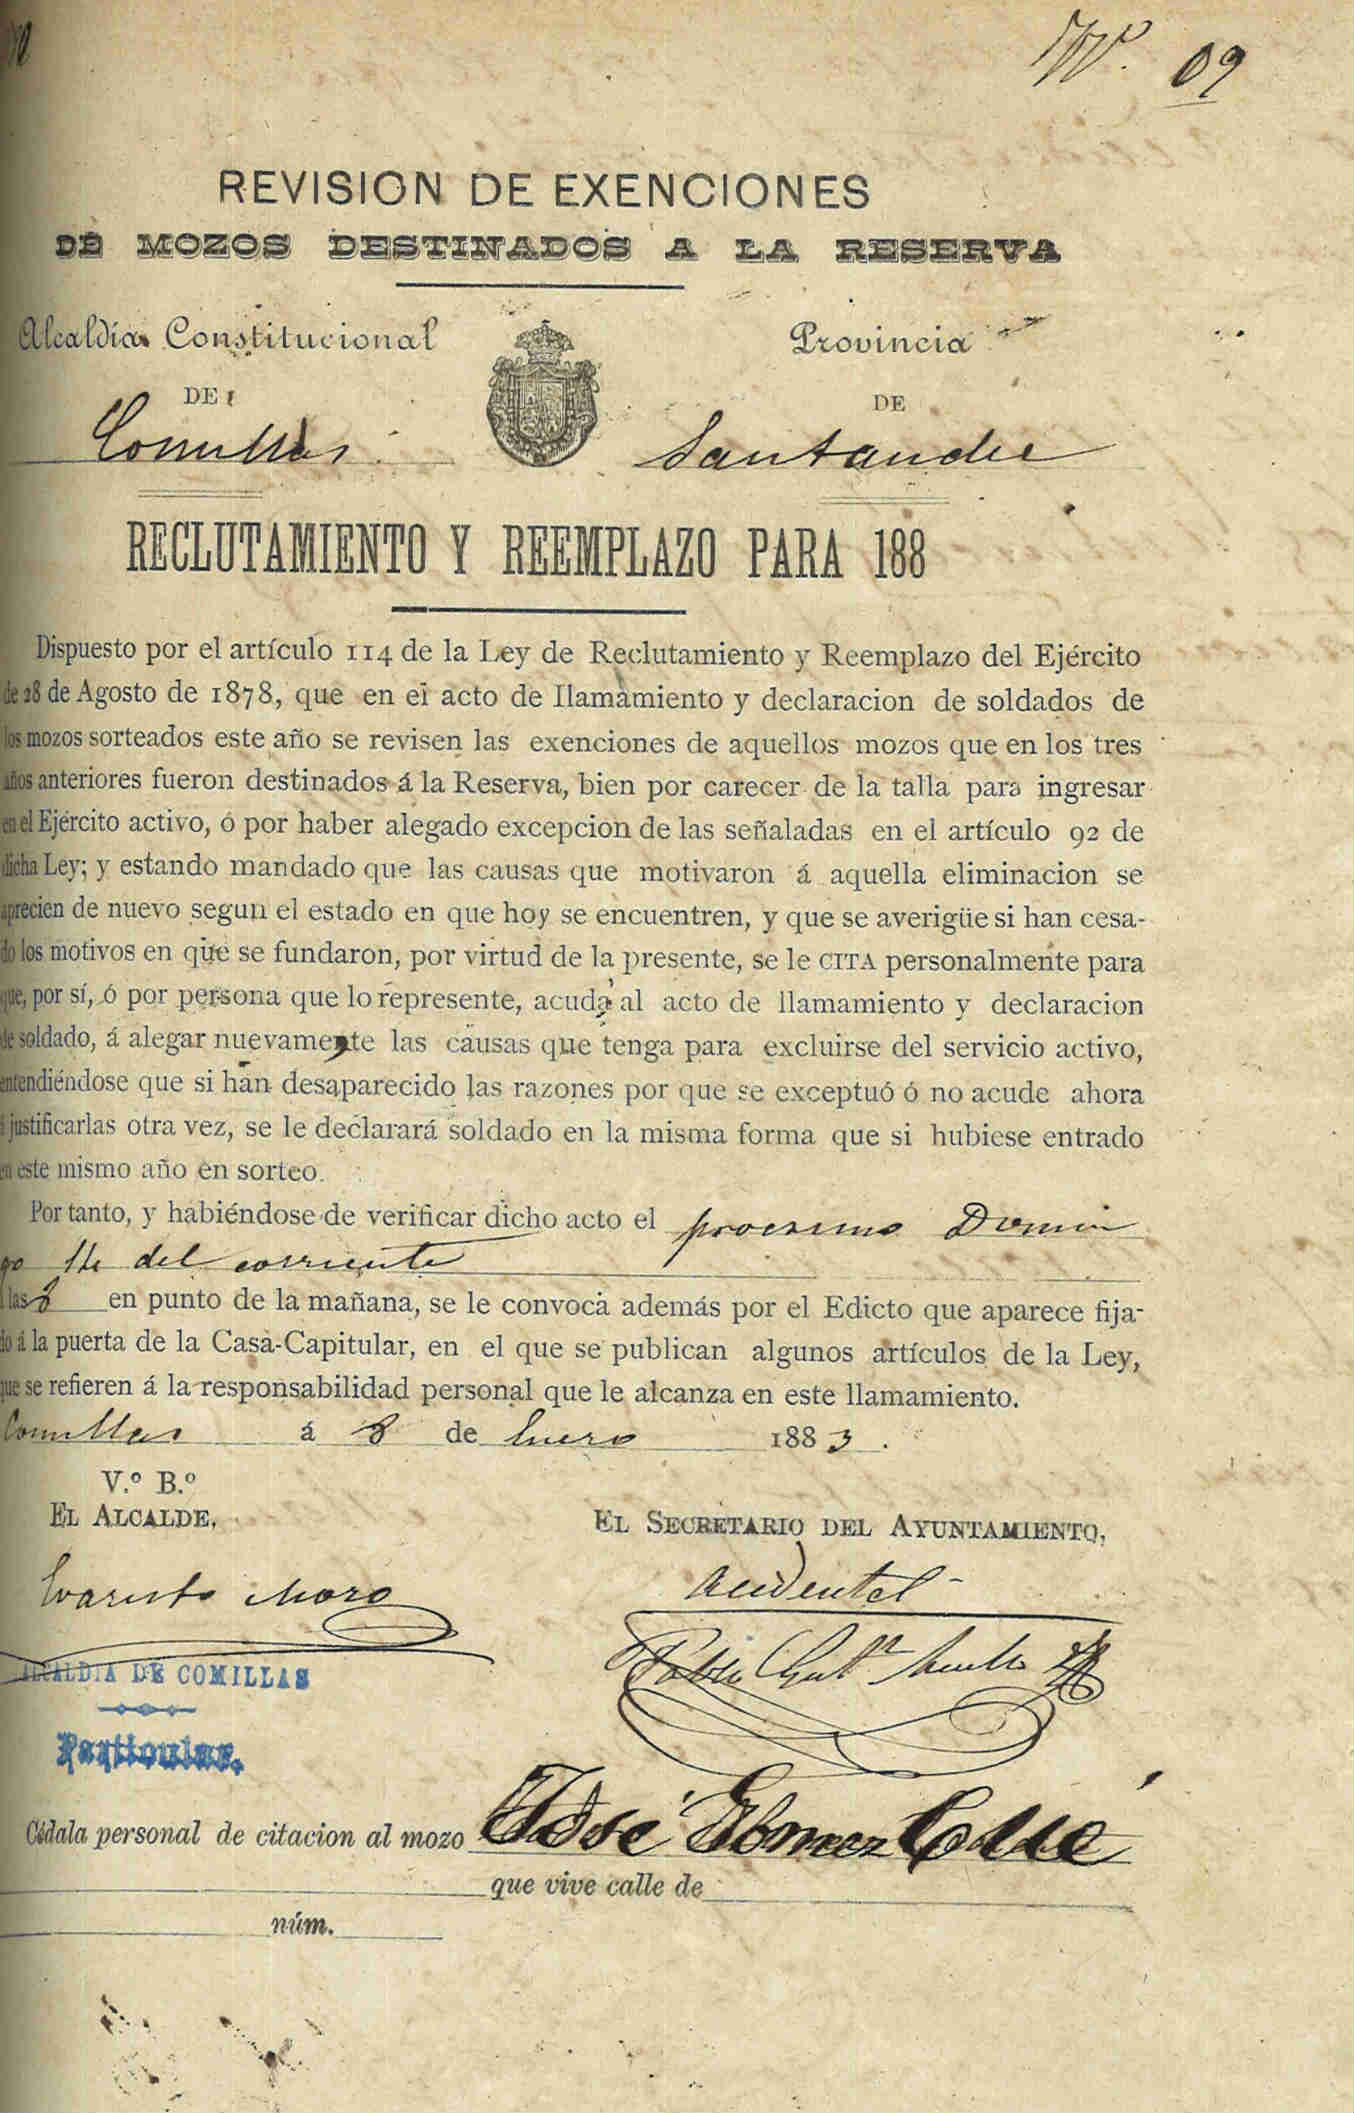 Nº. 09
REVISION DE EXENCIONES
DE MOZOS DESTINADOS A LA RESERVA
Alcaldía Constitucional
Provincia
DE
DE
Comillas
Santander
RECLUTAMIENTO Y REEMPLAZO PARA 188
Dispuesto por el artículo 114 de la Ley de Reclutamiento y Reemplazo del Ejército
de 28 de Agosto de 1878, que en el acto de llamamiento y declaracion de soldados de
los mozos sorteados este año se revisen las exenciones de aquellos mozos que en los tres
años anteriores fueron destinados á la Reserva, bien por carecer de la talla para ingresar
en el Ejército activo, ó por haber alegado excepcion de las señaladas en el artículo 92 de
dicha Ley; y estando mandado que las causas que motivaron á aquella eliminacion se
aprecien de nuevo segun el estado en que hoy se encuentren, y que se averigüe si han cesa-
do los motivos en que se fundaron, por virtud de la presente, se le CITA personalmente para
que, por sí, ó por persona que lo represente, acuda al acto de llamamiento y declaracion
de soldado, á alegar nuevamente las causas que tenga para excluirse del servicio activo,
entendiéndose que si han desaparecido las razones por que se exceptuó ó no acude ahora
á justificarlas otra vez, se le declarará soldado en la misma forma que si hubiese entrado
en este mismo año en sorteo.
Por tanto, y habiéndose de verificar dicho acto el proximo Domin
go 14 del corriente
á las 8 en punto de la mañana, se le convoca además por el Edicto que aparece fija-
do á la puerta de la Casa-Capitular, en el que se publican algunos artículos de la Ley,
que se refieren á la responsabilidad personal que le alcanza en este llamamiento.
Comillas á 8 de Enero 1883.
V.º B.º
EL ALCALDE,
EL SECRETARIO DEL AYUNTAMIENTO,
Evaristo Moro
Accidental
Pablo Gutz
ALCALDIA DE COMILLAS
Particular.
Cédala personal de citacion al mozo José Gomez
que vive calle de
núm.